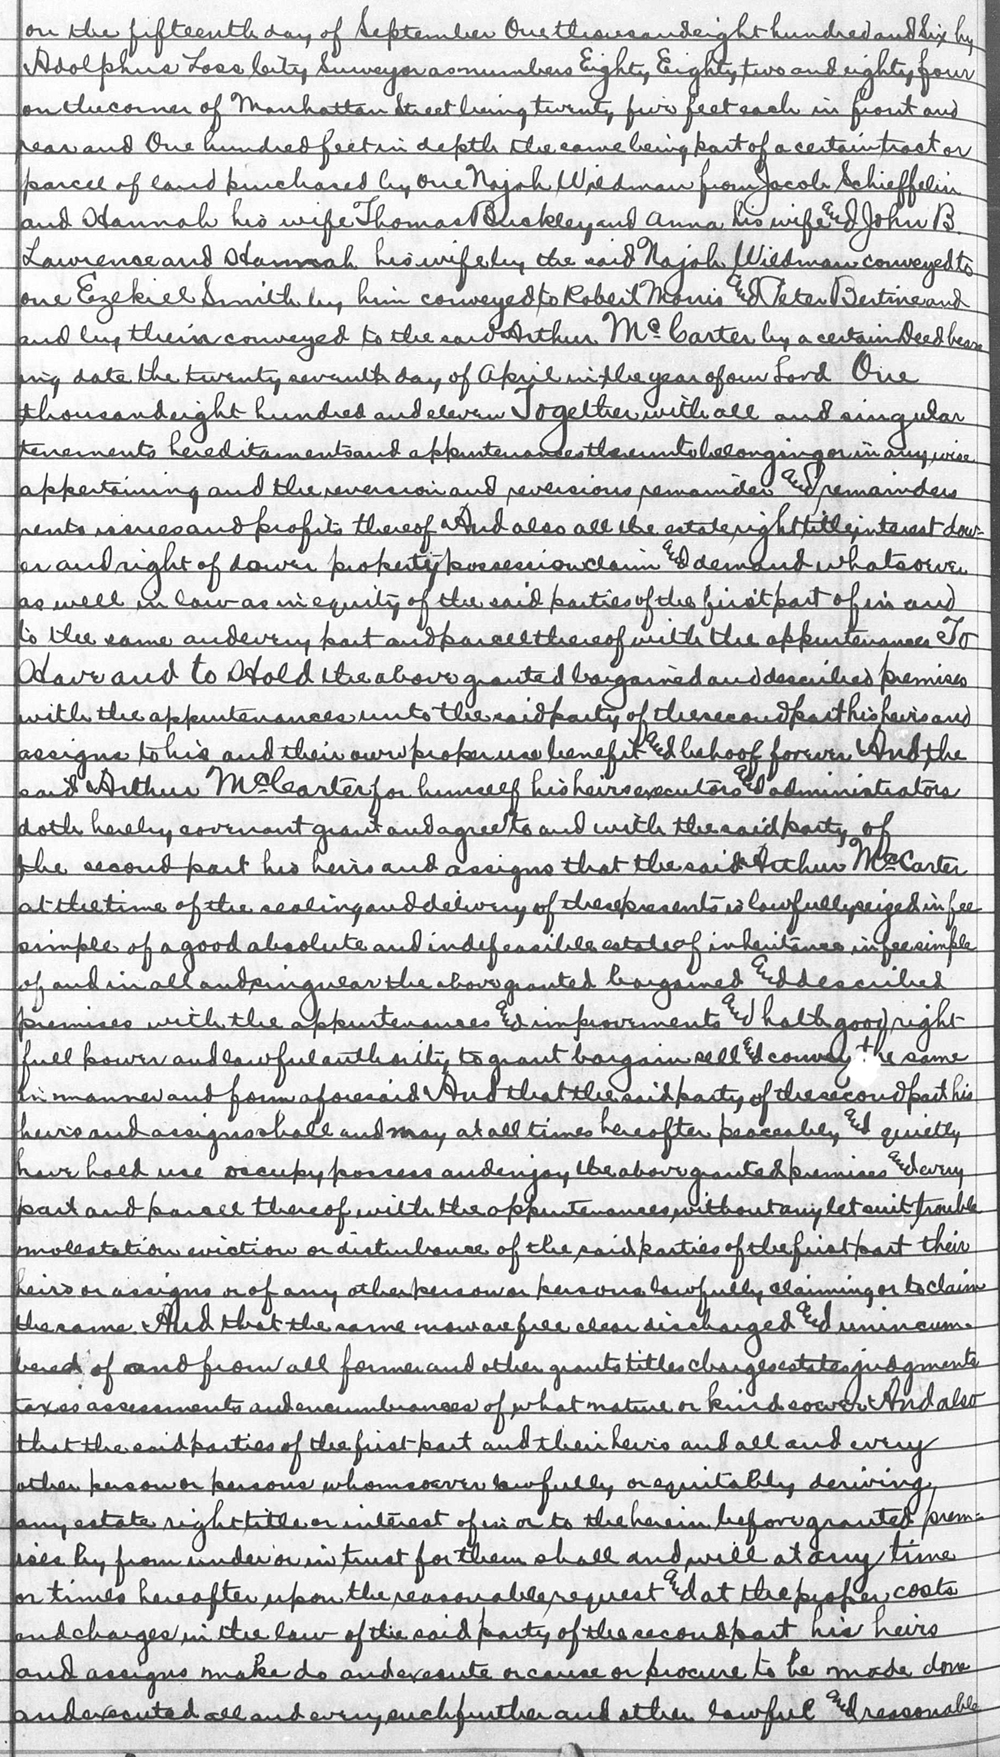 on the fifteenth day of September One thousand eight hundred and Six by
Adolphus Loss City Surveyor as numbers Eighty, Eighty two and eighty four
on the corner of Manhattan Street being twenty five feet each in front and
rear and One hundred feet in depth the same being part of a certain tract or
parcel of land purchased by one Najah Wildman from Jacob Schieffelin
and Hannah his wife Thomas Buckley and Anna his wife and John B.
Lawrence and Hannah his wife by the said Najah Wildman conveyed to
one Ezekiel Smith by him conveyed to Robert Morris and Peter Bertine and
and by them conveyed to the said Arthur McCarter by a certain Deed bear
ing date the twenty seventh day of April in the year of our Lord One
thousand eight hundred and eleven Together with all and singular
tenements hereditaments and appurtenances thereunto belonging or in any wise
appertaining and the reversion and reversions remainder and remainders
rents issues and profits thereof And also all the estate right title interest dow-
er and right of dower property possession claim and demand whatsoever
as well in law as in equity of the said parties of the first part of in and
to the same and every part and parcel thereof with the appurtenances To
Have and to Hold the above granted bargained and described premises
with the appurtenances unto the said party of the second part his heirs and
assigns to his and their own proper use benefit and behoof forever And the
said Arthur McCarter for himself his heirs executors and administrators
doth hereby covenant grant and agree to and with the said party of
the second part his heirs and assigns that the said Arthur McCarter
at the time of the sealing and delivery of these presents is lawfully seized in fee
simple of a good absolute and indefeasible estate of inheritance in fee simple
of and in all and singular the above granted bargained and described
premises with the appurtenances and improvements and hath good right
full power and lawful authority to grant bargain sell and convey the same
in manner and form aforesaid And that the said party of the second part his
heirs and assigns shall and may at all times hereafter peaceably and quietly
have hold use occupy possess and enjoy the above granted premises and every
part and parcell thereof with the appurtenances without any let suit trouble
molestation eviction or disturbance of the said parties of the first part their
heirs or assigns or of any other person or persons lawfully claiming or to claim
the same. And that the same now are free clear discharged and unincum-
bered of and from all former and other grants titles charges estates judgments
taxes assessments and encumbrances of what nature or kind soever And also
that the said parties of the first part and their heirs and all and every
other person or persons whomsoever lawfully or equitably deriving
any estate right title or interest of in or to the herein before granted prem-
ises by from under or in trust for them shall and will at any time
or times hereafter upon the reasonable request and at the proper costs
and charges in the law of the said party of the second part his heirs
and assigns make do and execute or cause or procure to be made done
and executed all and every such further and other lawful and reasonable